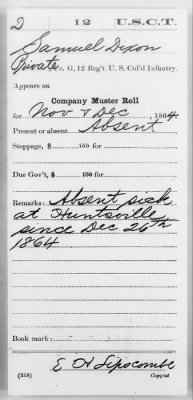 D 12 U.S.C.T.
Samuel Dixon
Private, Co. G, 12 Reg't U. S. Col'd Infantry.
Appears on
Company Muster Roll
for Nov & Dec, 1864
Present or absent Absent
Stoppage, $ 100 for
Due Gov't, $ 100 for
Remarks: Absent sick
at Huntsville
since Dec 26th
1864
Book mark:
E H Lipscombe
(358) Copyist